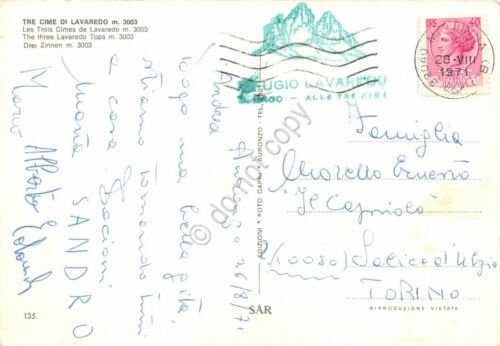 TRE CIME DI LAVAREDO m. 3003
Les Trois Cimes de Lavaredo m. 3003
The three Lavaredo Tops m. 3003
Drei Zinnen m. 3003
Andrea
26/8/71
Dopo una bella gita
stiamo tornando tutti
a casa. Bacioni
Maria SANDRO
Mario Alberto
135
EDIZIONI • FOTO GAPRI • AURONZO - TEL.
SAR
RIPRODUZIONE VIETATA
UGIO LAVAREDO
ALLE TRE CIME
32040
28-VIII
1971
40
Famiglia
Morello Ernesto
"Il Capriolo"
(10050) Salice d'Ulzio
TORINO
do not copy